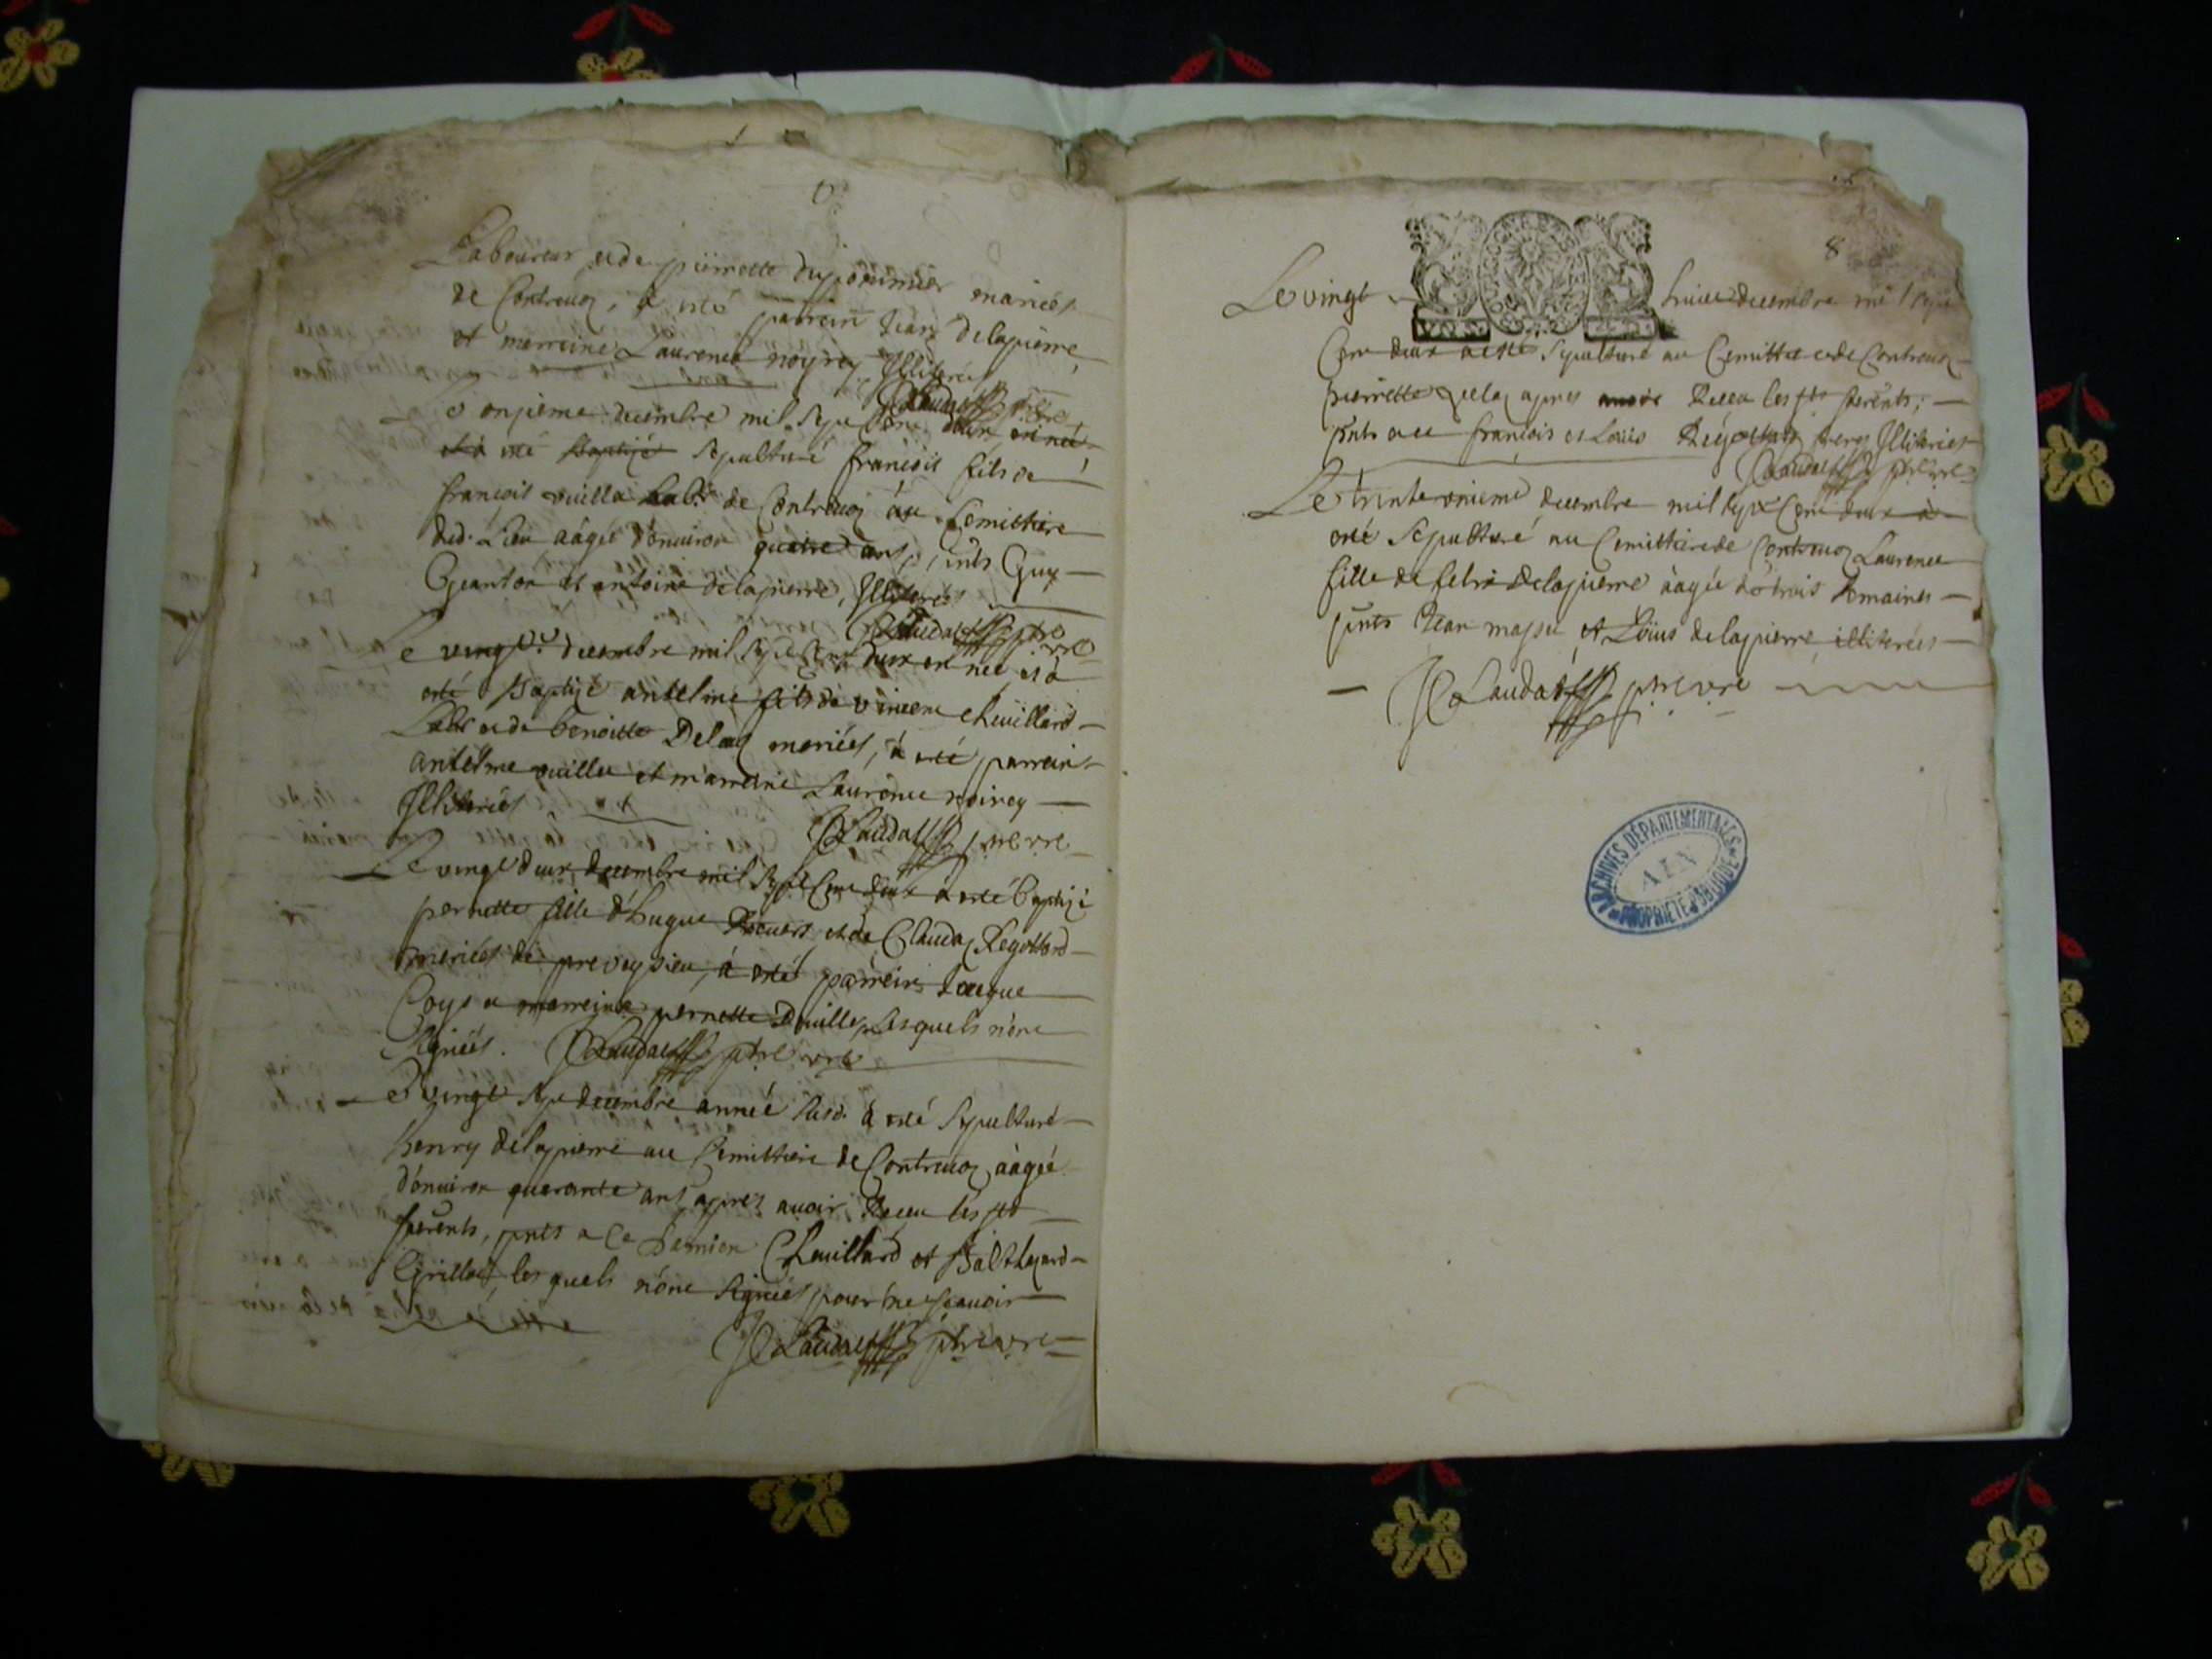 Laboureur et de pierrette du pommier mariés
de Contreuoz, à esté parrein Jean Delapierre
et marreine Laurence noyrey Illiterés
Claudat ptre vre
Le onzieme decembre mil sept cent deux est né
et à esté Baptizé sepulturé françois fils de
françois vuilla Labr. de Contreuoz au Cemittiere
dud. Lieu aâgé d'enuiron quatre ans, pnts Guy
et antoine delapierre, Illiterés
Claudat ptre vre
Le vingt decembre mil sept cent deux est né et à
esté Baptizé antelme fils de vincent cheuillard
Labr et de benoitte Delaz mariés, à esté parrein
antelme vuilla et marreine Laurence noirey
Illiterés
Claudat ptre vre
Le vingt deux decembre mil sept cent deux à esté Baptizé
pernette fille d'hugue et de Clauda Regottard
mariés de preveyzieu, à esté parrein
et marreine pernette Lesquels n'ont
signés. Claudat ptre vre
Le vingt sept decembre année susd. à esté sepulturé
henry delapierre au Cemittiere de Contreuoz aâgé
d'enuiron quarante ans apres auoir Receu les sts
sacrents, pnts a ce Damien Cheuillard et Balthezard
Grillet, lesquels n'ont signés pour ne scauoir
Claudat ptre vre
8
Le vingt huict decembre mil sept
Cent deux a esté sepulturé au Cemittiere de Contreuoz
pierrette apres auoir Receu les sts sacrents;
pnts a ce françois et Louis Illiterés
Claudat ptre vre
Le trente unieme decembre mil sept Cent deux à
esté sepulturé au Cemittiere de Contreuoz Laurence
fille de felix Delapierre aâgée de trois semaines
pnts Jean et Loüis delapierre illiterés
Claudat ptre vre
ARCHIVES DÉPARTEMENTALES
AIN
PROPRIÉTÉ PUBLIQUE